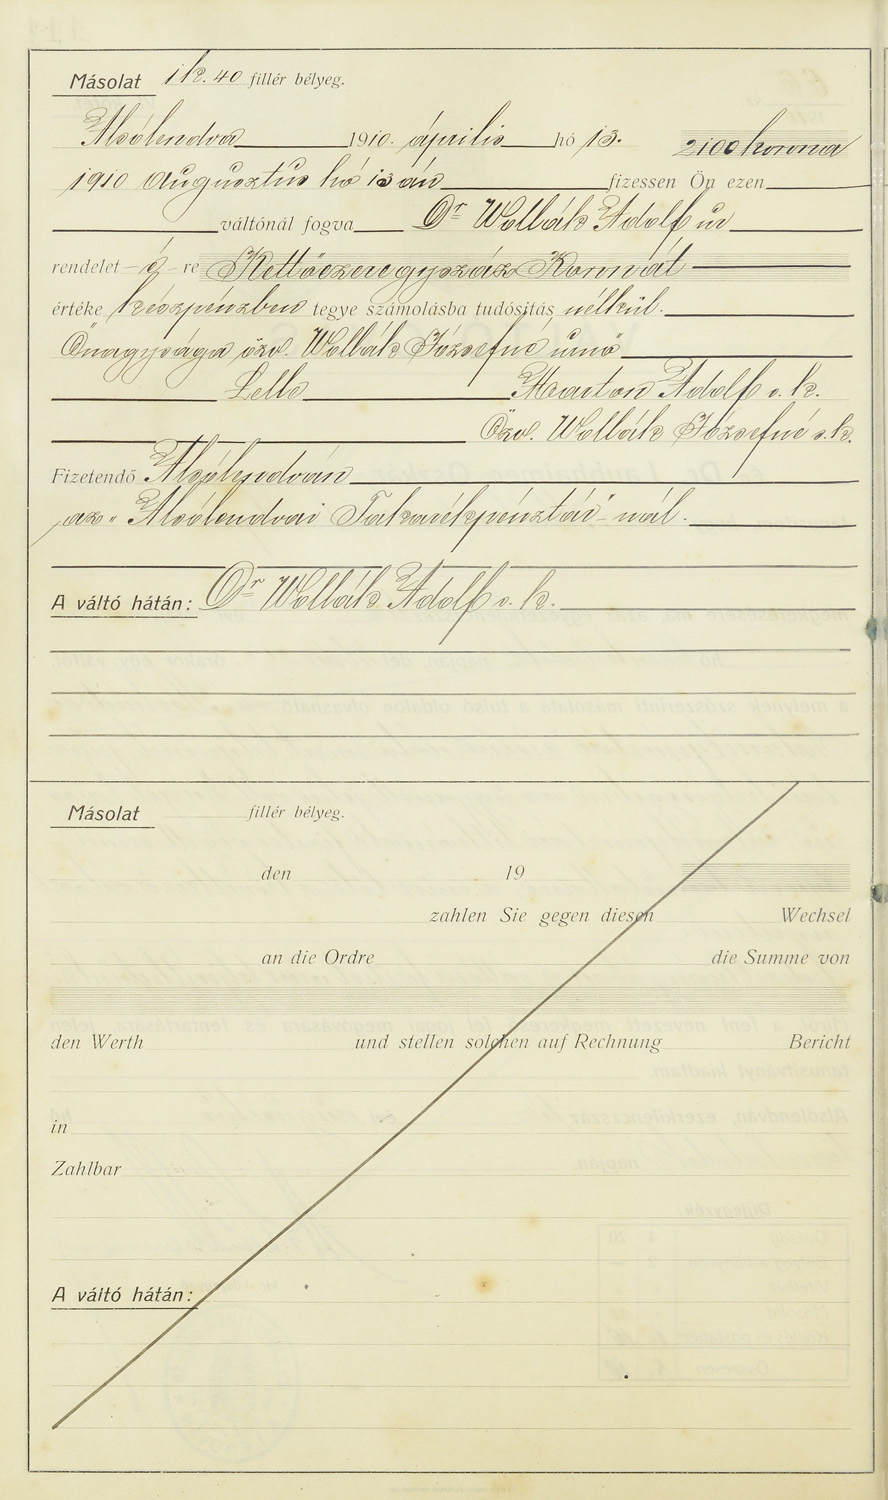 Másolat 1 k. 40 fillér bélyeg.
Alsólendva 1910. április hó 13. 2100 korona
1910 Augusztus hó 13 án fizessen Ön ezen
váltónál fogva Dr Wollák Adolf úr
rendelet é re Kettőezeregyszáz Koronát
értéke készpénzben tegye számolásba tudósítás nélkül.
Őnagysága özv. Wollák Józsefné úrnő
Lelle Marton Adolf s. k.
Özv. Wollák Józsefné s. k.
Fizetendő Alsólendván
az „Alsólendvai Takarékpénztár"-nál.
A váltó hátán: Dr Wollák Adolf s. k.
Másolat fillér bélyeg.
den 19
zahlen Sie gegen diesen Wechsel
an die Ordre die Summe von
den Werth und stellen solchen auf Rechnung Bericht
in
Zahlbar
A váltó hátán: